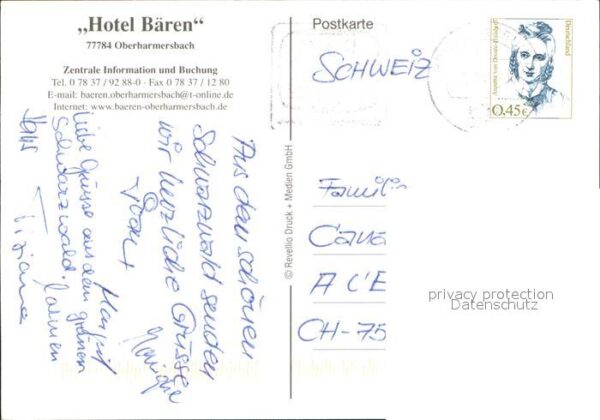 „Hotel Bären“
77784 Oberharmersbach
Zentrale Information und Buchung
Tel. 0 78 37 / 92 88-0 · Fax 0 78 37 / 12 80
E-mail: baeren.oberharmersbach@t-online.de
Internet: www.baeren-oberharmersbach.de
Aus dem schönen
Schwarzwald senden
wir herzliche Grüsse
Monique
Liebe Grüsse aus dem grünen
Schwarzwald.
Margrit
Tiziana
© Revellio Druck + Medien GmbH
Postkarte
SCHWEIZ
Deutschland
0,45€
Famili
A L'E
CH-75
privacy protection
Datenschutz